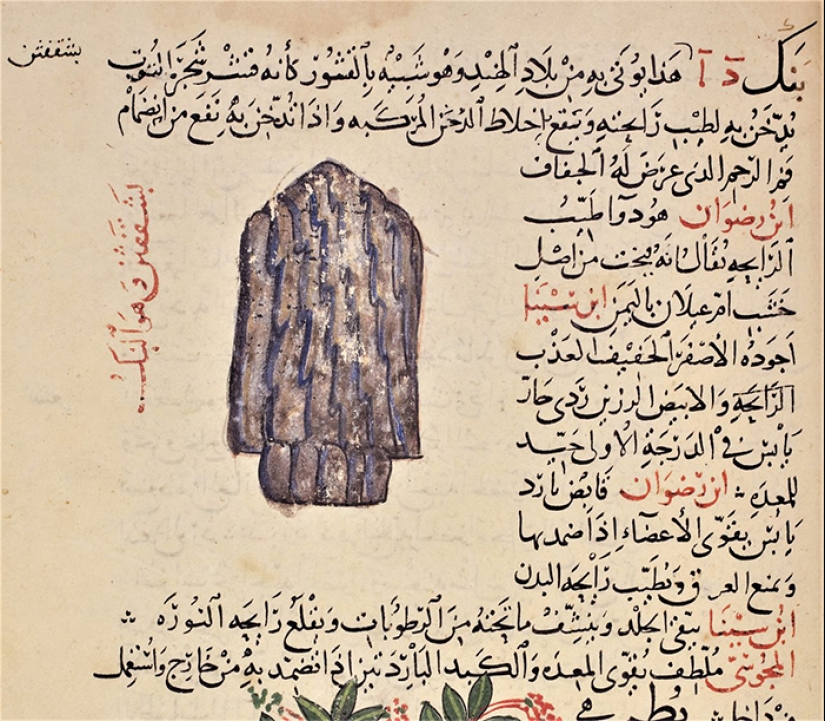 بشقفثن
بنك د آ هذا يوتى به من بلاد الهند وهو شبيه بالقشور كأنه قشر شجر التوت
يدخن به لطيب رايحته وينفع باخلاط الدخن المركبه واذا تدخن به نفع من انضمام
فم الرحم الذى عرض له الجفاف
ابن رضوان هو دوآ طيب
الرايحه يقال انه ينحت من اصل
خشب ام غيلان باليمن ابن سينا
اجوده الاصفر الخفيف العذب
الرايحه والابيض الرزين ردى حار
يابس فى الدرجة الاولى جيد
للمعده ابن رضوان قابض بارد
يابس يقوى الأعضاء اذا ضمد بها
ويمنع العرق ويطيب رايحه البدن
ابن سينا ينقى الجلد وينشف ما تحته من الرطوبات ويقلع رايحه النوره
المجوسى ملطف يقوى المعده والكبد الباردتين اذا ضمد به من خارج واستعمل
بشقفثن وهو البنك